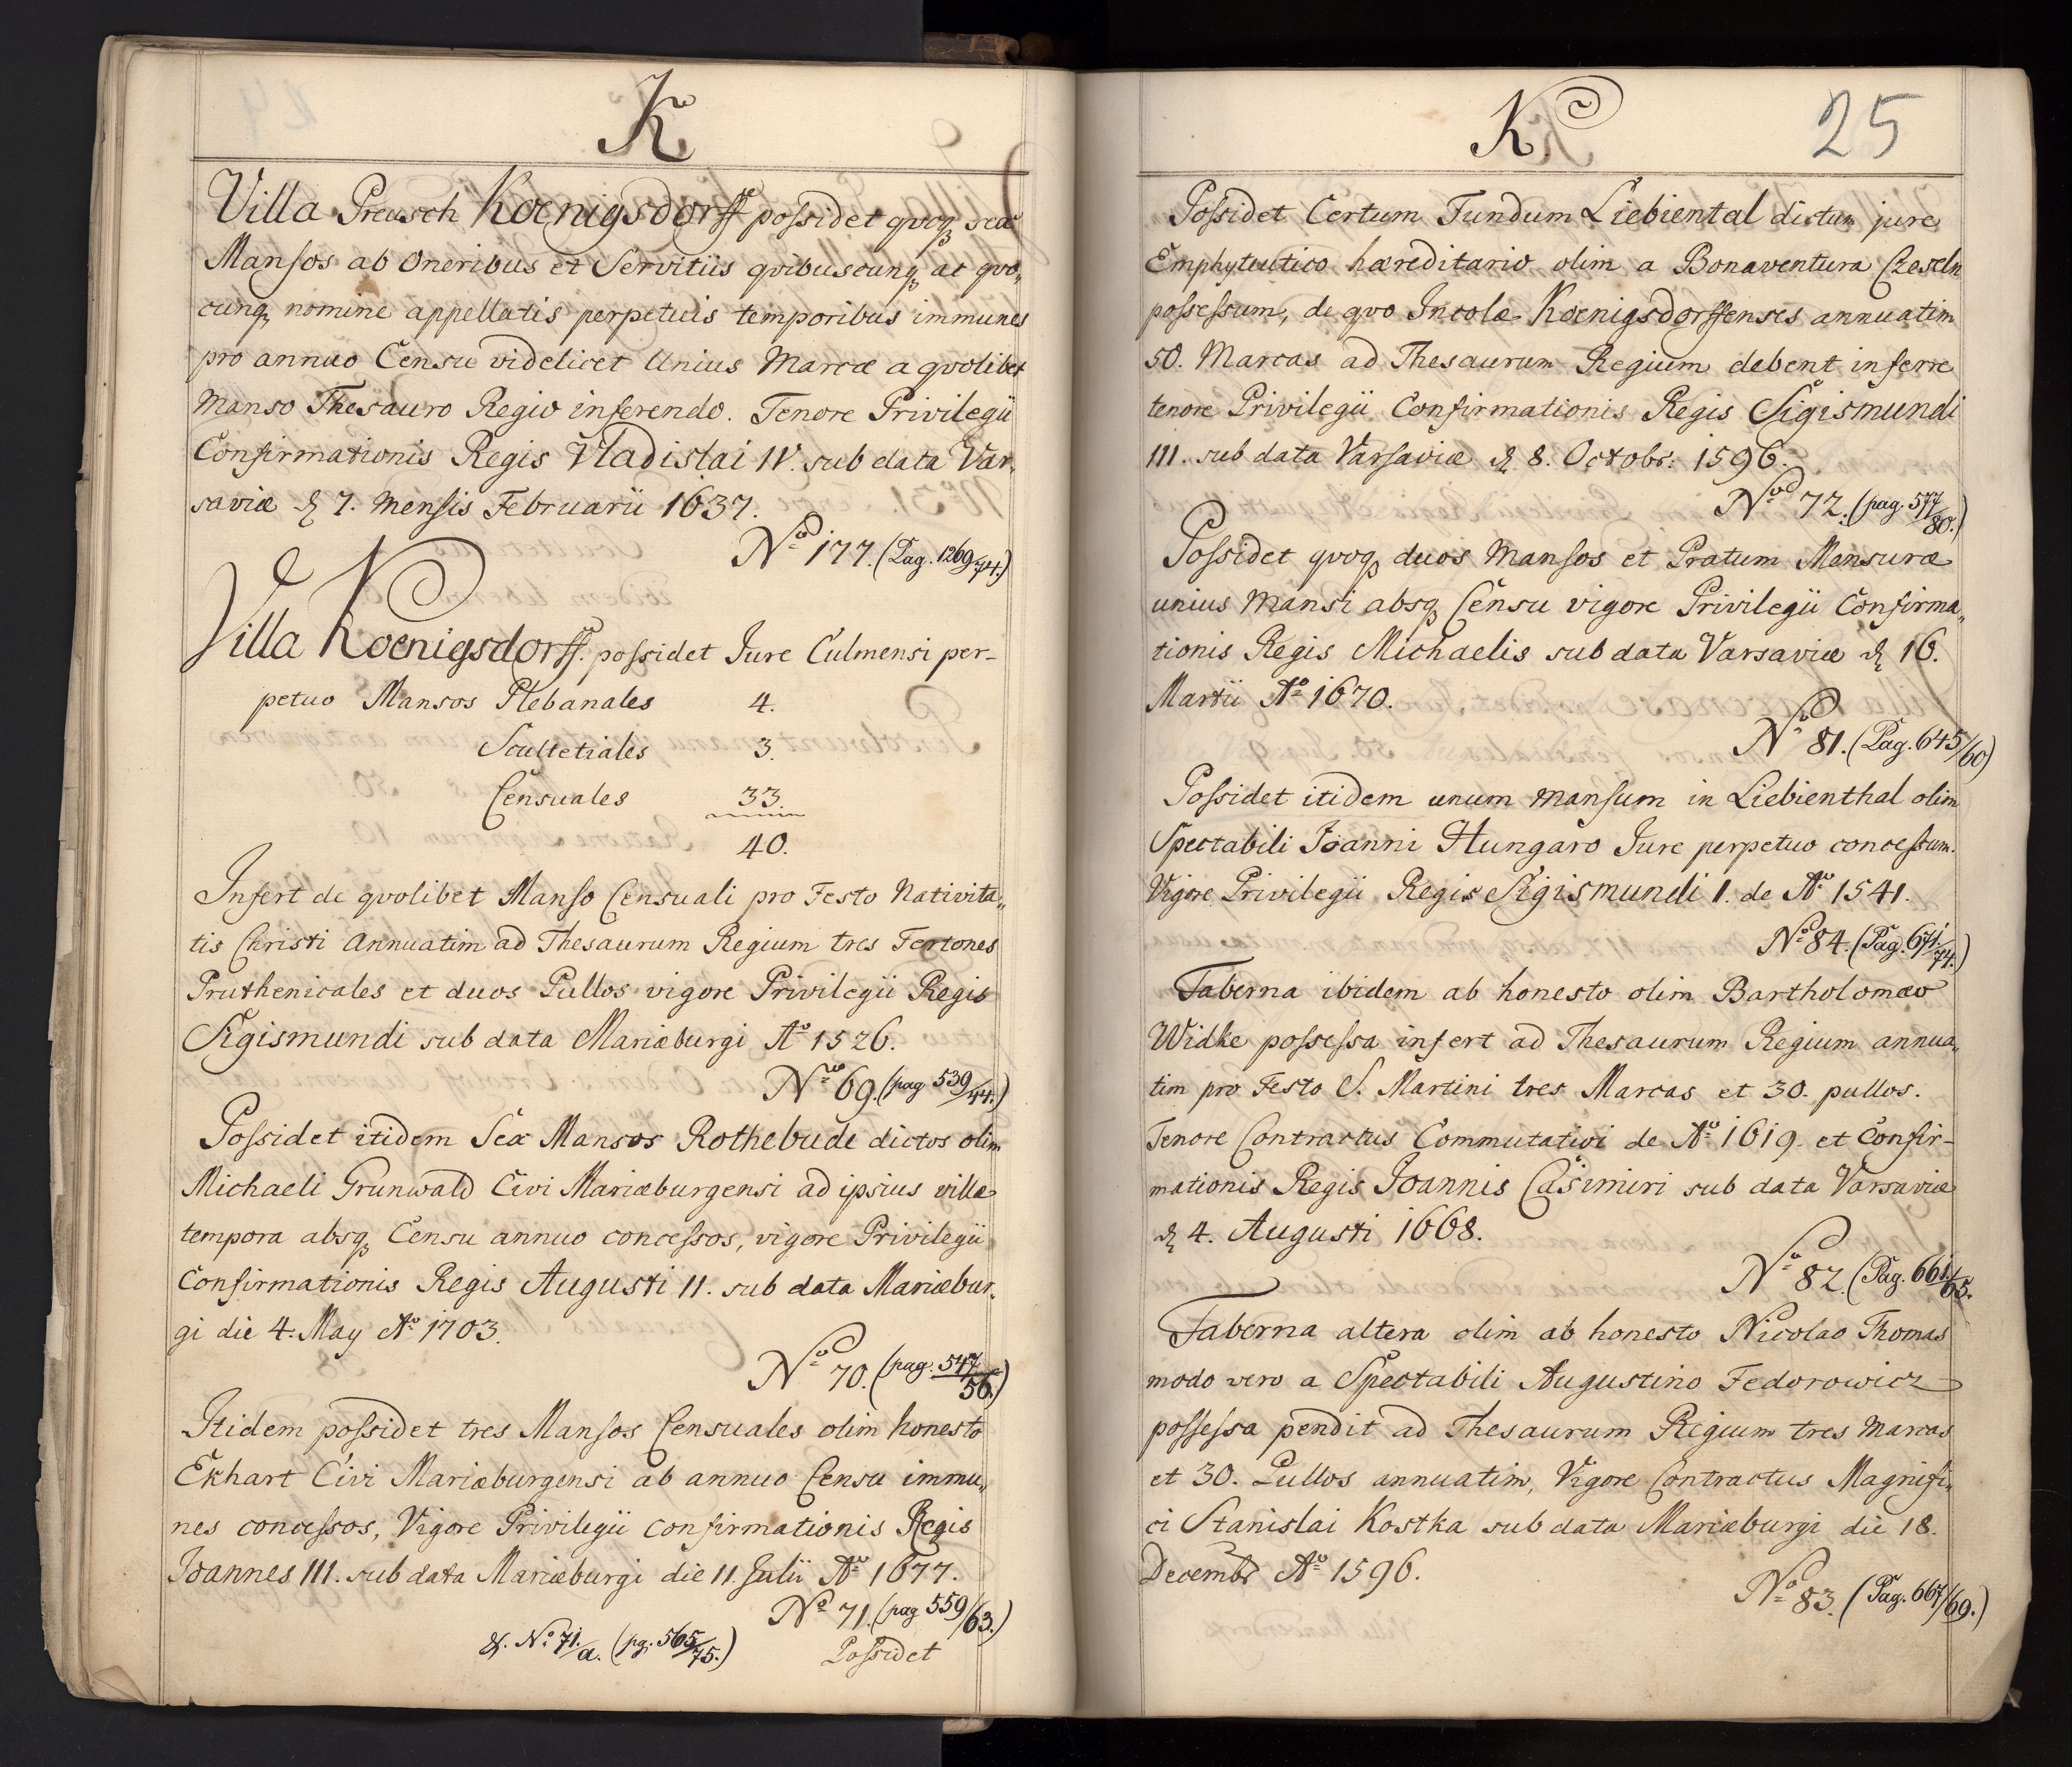 K
Villa Preusch Koenigsdorff possidet qvoqꝫ sex
Mansos ab Oneribus et Servitiis qvibuscunqꝫ ac qvo„
cunqꝫ nomine appellatis perpetuis temporibus immunes
pro annuo Censu videlicet Unius Marcæ a qvolibet
Manso Thesauro Regio inferendo. Tenore Privilegii
Confirmationis Regis Vladislai IV. sub data Var„
saviæ d. 7. Mensis Februarii 1637.
No 177. (Pag. 1269/74.)
Villa Koenigsdorff. possidet Jure Culmensi per-
petuo Mansos Plebanales 4.
Scultetiales 3.
Censuales 33.
40.
Infert de qvolibet Manso Censuali pro Festo Nativita„
tis Christi Annuatim ad Thesaurum Regium tres Fertones
Pruthenicales et duos Pullos vigore Privilegii Regis
Sigismundi sub data Mariæburgi Ao 1526.
No 69. (pag 539/44.)
Possidet itidem Sex Mansos Rothebude dictos olim
Michaeli Grunwald Civi Mariæburgensi ad ipsius villæ
tempora absqꝫ Censu annuo concessos, vigore Privilegii
Confirmationis Regis Augusti II. sub data Mariæbur„
gi die 4. May Ao 1703.
No 70. (pag. 547/56.)
Itidem possidet tres Mansos Censuales olim honesto
Ekhart Civi Mariæburgensi ab annuo Censu immu„
nes concessos, Vigore Privilegii confirmationis Regis
Joannes III. sub data Mariæburgi die 11. Julii Ao 1677.
No 71. (pag 559/63.)
&. No 71/a. (pg. 565/75.)
Possidet
K
25
Possidet Certum Fundum Liebiental dictum jure
Emphyteutico hæreditario olim a Bonaventura Czeseln
possessum, de qvo Incolæ Koenigsdorffenses annuatim
50. Marcas ad Thesaurum Regium debent inferre
tenore Privilegii Confirmationis Regis Sigismundi
III. sub data Varsaviæ d. 8. Octobr: 1596.
No 72. (pag. 577/80.)
Possidet qvoqꝫ duos Mansos et Pratum Mensuræ
unius Mansi absqꝫ Censu vigore Privilegii Confirma„
tionis Regis Michaelis sub data Varsaviæ d. 16.
Martii Ao 1670.
No 81. (Pag. 645/60)
Possidet itidem unum Mansum in Liebienthal olim
Spectabili Joanni Hungaro Jure perpetuo concessum.
Vigore Privilegii Regis Sigismundi I. de Ao 1541.
No 84. (Pag. 671./74.)
Taberna ibidem ab honesto olim Bartholomæo
Widke possessa infert ad Thesaurum Regium annua„
tim pro Festo S. Martini tres Marcas et 30. pullos.
Tenore Contractus Commutativi de Ao 1619. et Confir-
mationis Regis Joannis Casimiri sub data Varsaviæ
d. 4. Augusti 1668.
No 82. (Pag. 661/65.
Taberna altera olim ab honesto Nicolao Thomas
modo vero a Spectabili Augustino Fedorowicz
possessa pendit ad Thesaurum Regium tres Marcas
et 30. Pullos annuatim, Vigore Contractus Magnifi„
ci Stanislai Kostka sub data Mariæburgi die 18.
Decembr Ao 1596.
No 83. (Pag. 667/69.)